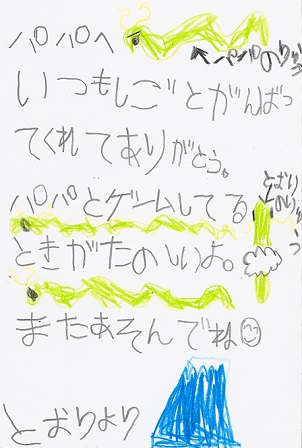 パパへ
いつもしごとがんばっ
てくれてありがとう。
パパとゲームしてる
ときがたのしいよ。
またあそんでね
とおりより